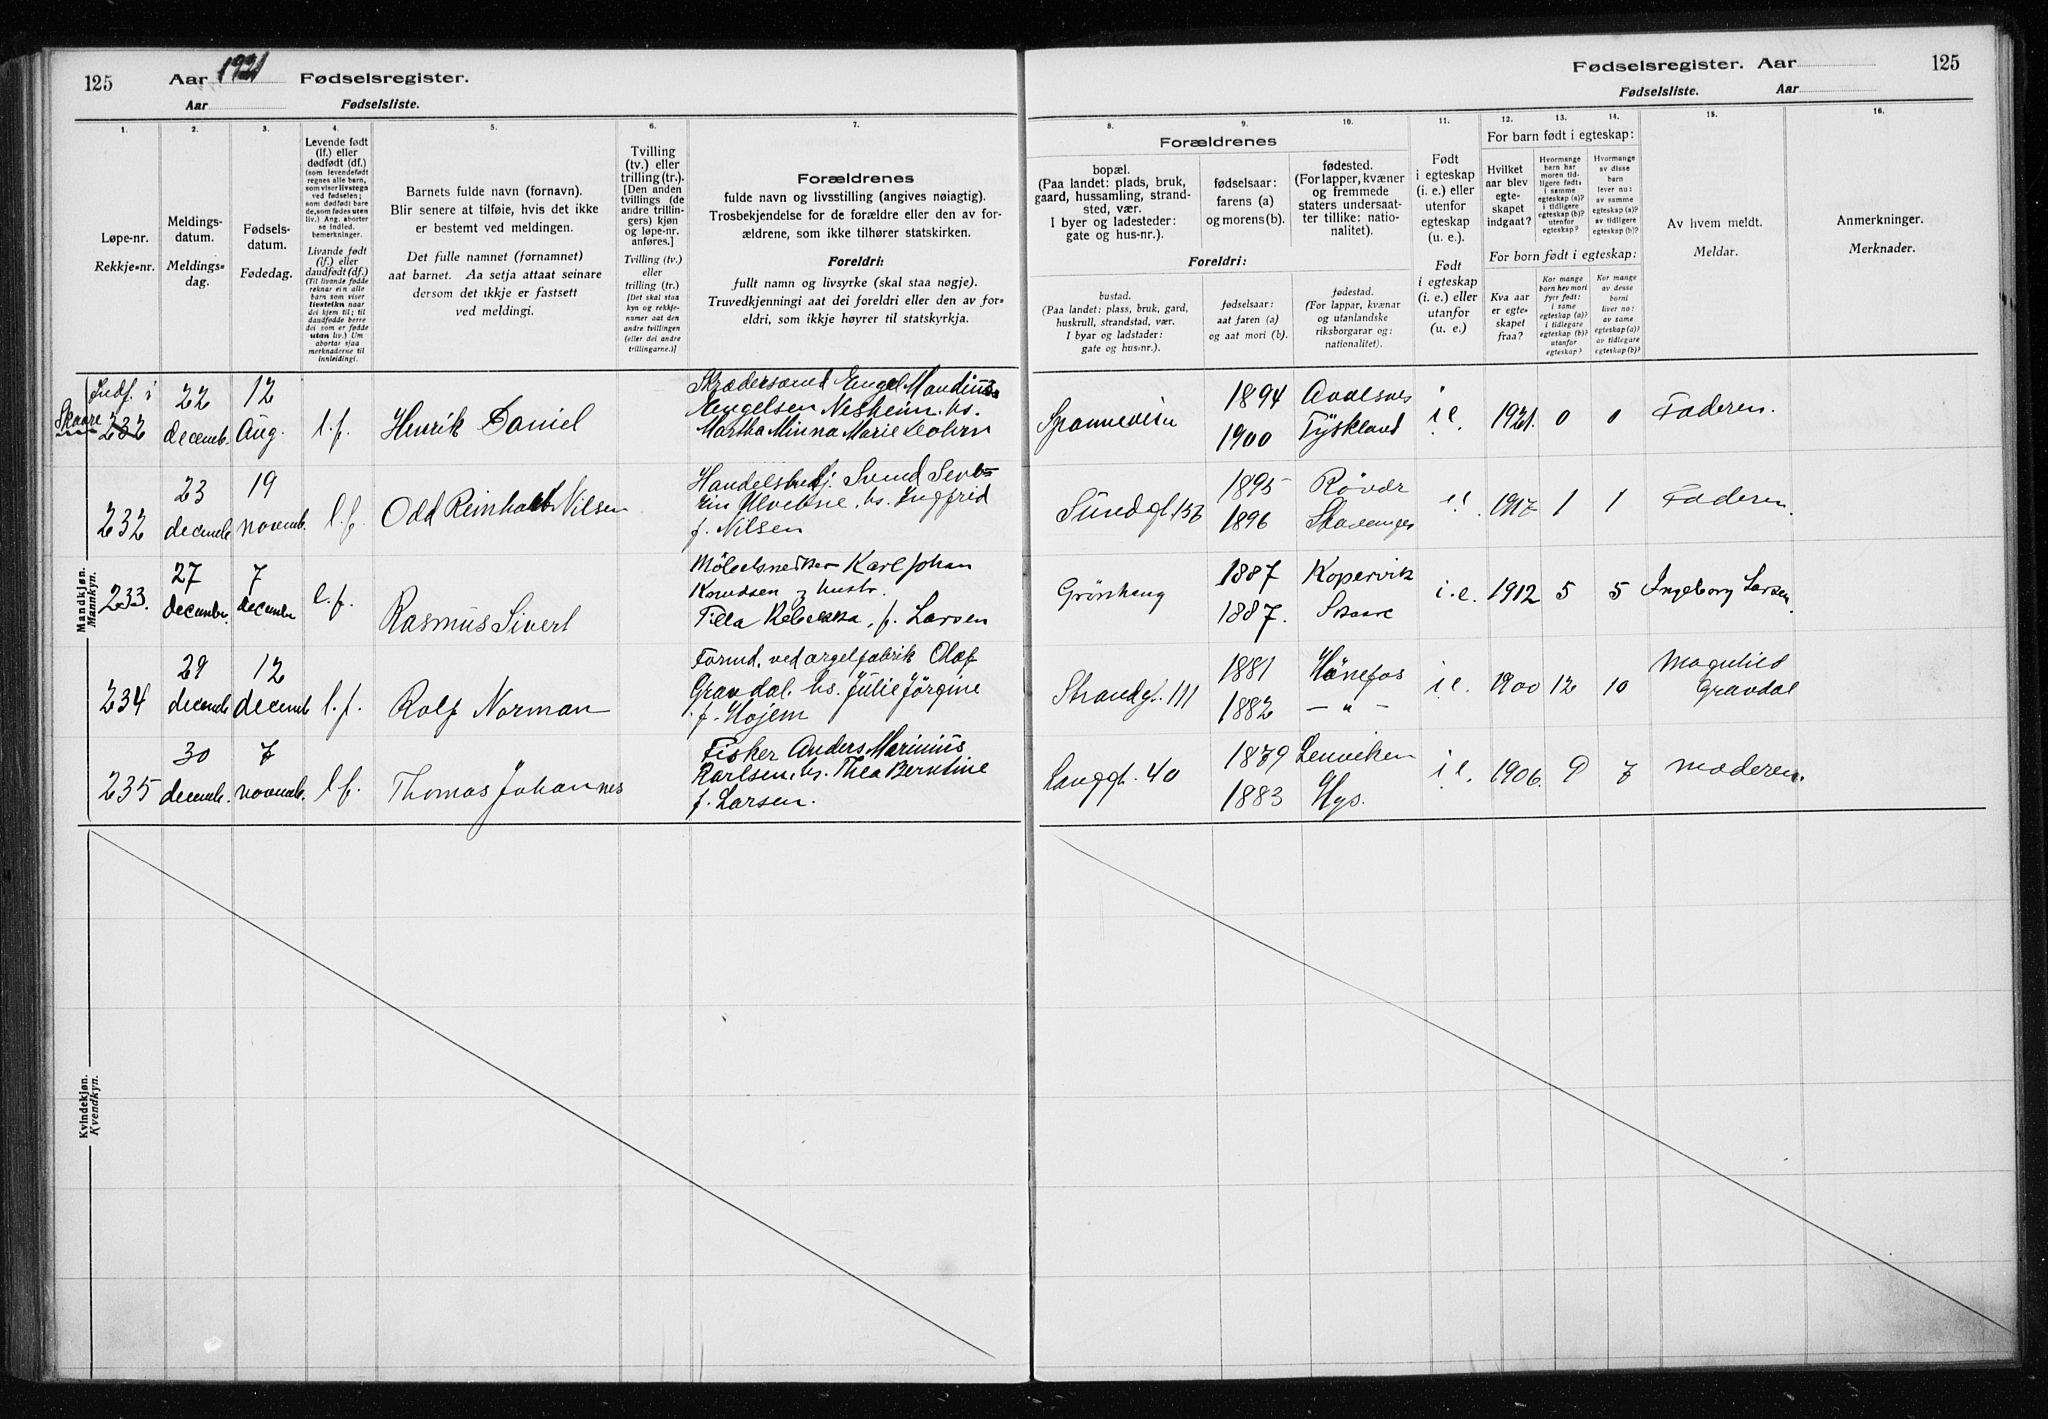 125 Aar 1921 Fødselsregister.
Aar Fødselsliste.
Fødselsregister. Aar 125
Fødselsliste. Aar
1.
Løpe-nr.
Rekkje-nr.
2.
Meldings-
datum.
Meldings-
dag.
3.
Fødsels-
datum.
Fødedag.
4.
Levende født
(lf.) eller
dødfødt (df.)
(som levendefødt
regnes alle barn,
som viser livstegn
ved fødselen;
som dødfødt bare
de, som fødes uten
liv.) Ang. aborter
se indled.
bemerkninger.
Livande født
(lf.) eller
daudfødt (df.)
(Til livande fødde
reknar ein alle
barn som viser
livsteikn naar
dei kjem til; til
daudfødde berre
dei som er fødde
utan liv.) Um
abortar sjaa
merknaderne til
innleiding.
5.
Barnets fulde navn (fornavn).
Blir senere at tilføie, hvis det ikke
er bestemt ved meldingen.
Det fulle namnet (fornamnet)
aat barnet. Aa setja attaat seinare
dersom det ikkje er fastsett
ved meldingi.
6.
Tvilling
(tv.) eller
trilling (tr.).
[Den anden
tvillings (de
andre trillin-
gers) kjøn
og løpe-nr.
anføres.]
Tvilling (tv.)
eller
trilling (tr.)
[Det skal staa
kyn og rekkje-
numer aat den
andre tvillingen
(eller dei andre
trillingarne.)]
7.
Forældrenes
fulde navn og livsstilling (angives nøiagtig).
Trosbekjendelse for de forældre eller den av for-
ældrene, som ikke tilhører statskirken.
Foreldri:
fullt namn og livsyrke (skal staa nøgje).
Truvedkjenningi aat dei foreldri eller den av for-
eldri, som ikkje høyrer til statskyrkja.
Forældrenes
Foreldri:
8.
bopæl.
(Paa landet: plads, bruk,
gaard, hussamling, strand-
sted, vær.
I byer og ladesteder:
gate og hus-nr.).
bustad.
(Paa landet: plass, bruk, gard,
huskrull, strandstad, vær.
I byar og ladstader:
gate og hus-nr.).
9.
fødselsaar:
farens (a)
og morens (b).
fødselsaar:
aat faren (a)
og aat mori (b).
10.
fødested.
(For lapper, kvæner
og fremmede
staters undersaat-
ter tillike: natio-
nalitet).
fødestad.
(For lappar, kvænar
og utanlandske
riksborgarar og:
nationalitet).
11.
Født
i egteskap
(i. e.) eller
utenfor
egteskap
(u. e.).
Født
i egteskap
(i. e.) eller
utanfor
(u. e.)
For barn født i egteskap:
For born født i egteskap:
12.
Hvilket
aar blev
egte-
skapet
indgaat?
Kva aar
er egte-
skapet
fraa?
13.
Hvormange
barn har
moren tid-
ligere født:
i samme
egteskap (a)?
i tidligere
egteskap (b)?
utenfor
egteskap?
Kor mange
born hev mori
fyrr født:
i same
egteskap (a)?
i tidlegare
egteskap (b)?
utanfor
egteskap?
14.
Hvormange
av disse
barn
lever nu:
av samme
egteskap (a)?
av tidligere
egteskap (b)?
Kor mange
av desse
borni
liver no:
av same
egteskap (a)?
av tidlegare
egteskap (b)?
15.
Av hvem meldt.
Meldar.
16.
Anmerkninger.
Merknader.
Mandkjøn.
Mannkyn.
Indf. i
Skaare
232 22 decemb. 12 Aug. l.f. Henrik Daniel
Skrædersvend Engel Mandius
Engelsen Nesheim. hs.
Martha Minna Marie
1894 Avalsnes
1900 Tyskland
i.e. 1921. 0 0 Faderen.
232 23 decemb. 19 novemb. l.f. Odd Reinholdt Nilsen
Handelsbetj. Svend Seve-
rin hs. Ingfrid
f. Nilsen
Sundgt. 136
1895 Røvær
1896 Stavanger
i.e. 1917 1 1 Faderen.
233. 27 december. 7 december l.f. Rasmus Sivert
Møbelsnedker Karl Johan
Knudsen og hustr.
Tilla Rebekka, f. Larsen
Grønhaug
1887 Kopervik
1887. Skaare
i.e. 1912 5 5 Ingeborg Larsen.
234 29 decemb. 12 decemb. l.f. Rolf Norman
Formd. ved orgelfabrik Olaf
Gravdal. hs. Julie Jörgine
f. Hojem
Strandgt. 111
1881 Hönefos
1882 — " —
i.e. 1900 12 10 Magnhild
Gravdal
235 30 decemb. 7 novemb. l.f. Thomas Johannes
Fisker Anders Marinius
Karlsen. hs. Thea Berntine
f. Larsen.
Langgt. 40
1879 Lenviken
1883 Hgs.
i.e. 1906. 9 7 moderen.
Kvindekjøn.
Kvendkyn.